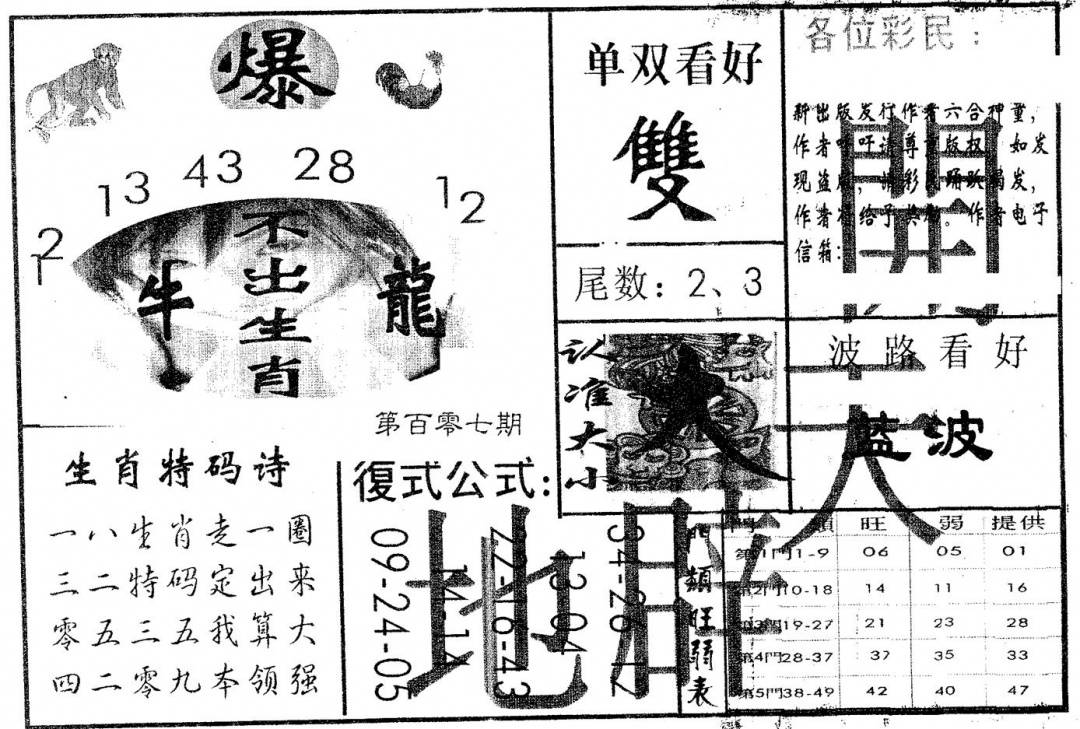 爆
12
13
43
28
12
不出生肖
牛
龍
第百零七期
单双看好
雙
尾数：2、3
各位彩民：
新出版发行作者六合神童，
作者呼吁请尊重版权，如发
现盗版，请彩民踊跃揭发，
作者将给予奖励。作者电子
信箱：
认准大小
大
波路看好
蓝波
生肖特码诗
一八生肖走一圈
三二特码定出来
零五三五我算大
四二零九本领强
復式公式：
09-24-05
14-14
22-16-43
13-04
34-26-12
開
天
地
門類旺弱表
門類 旺 弱 提供
第1門1-9 06 05 01
第2門10-18 14 11 16
第3門19-27 21 23 28
第4門28-37 37 35 33
第5門38-49 42 40 47